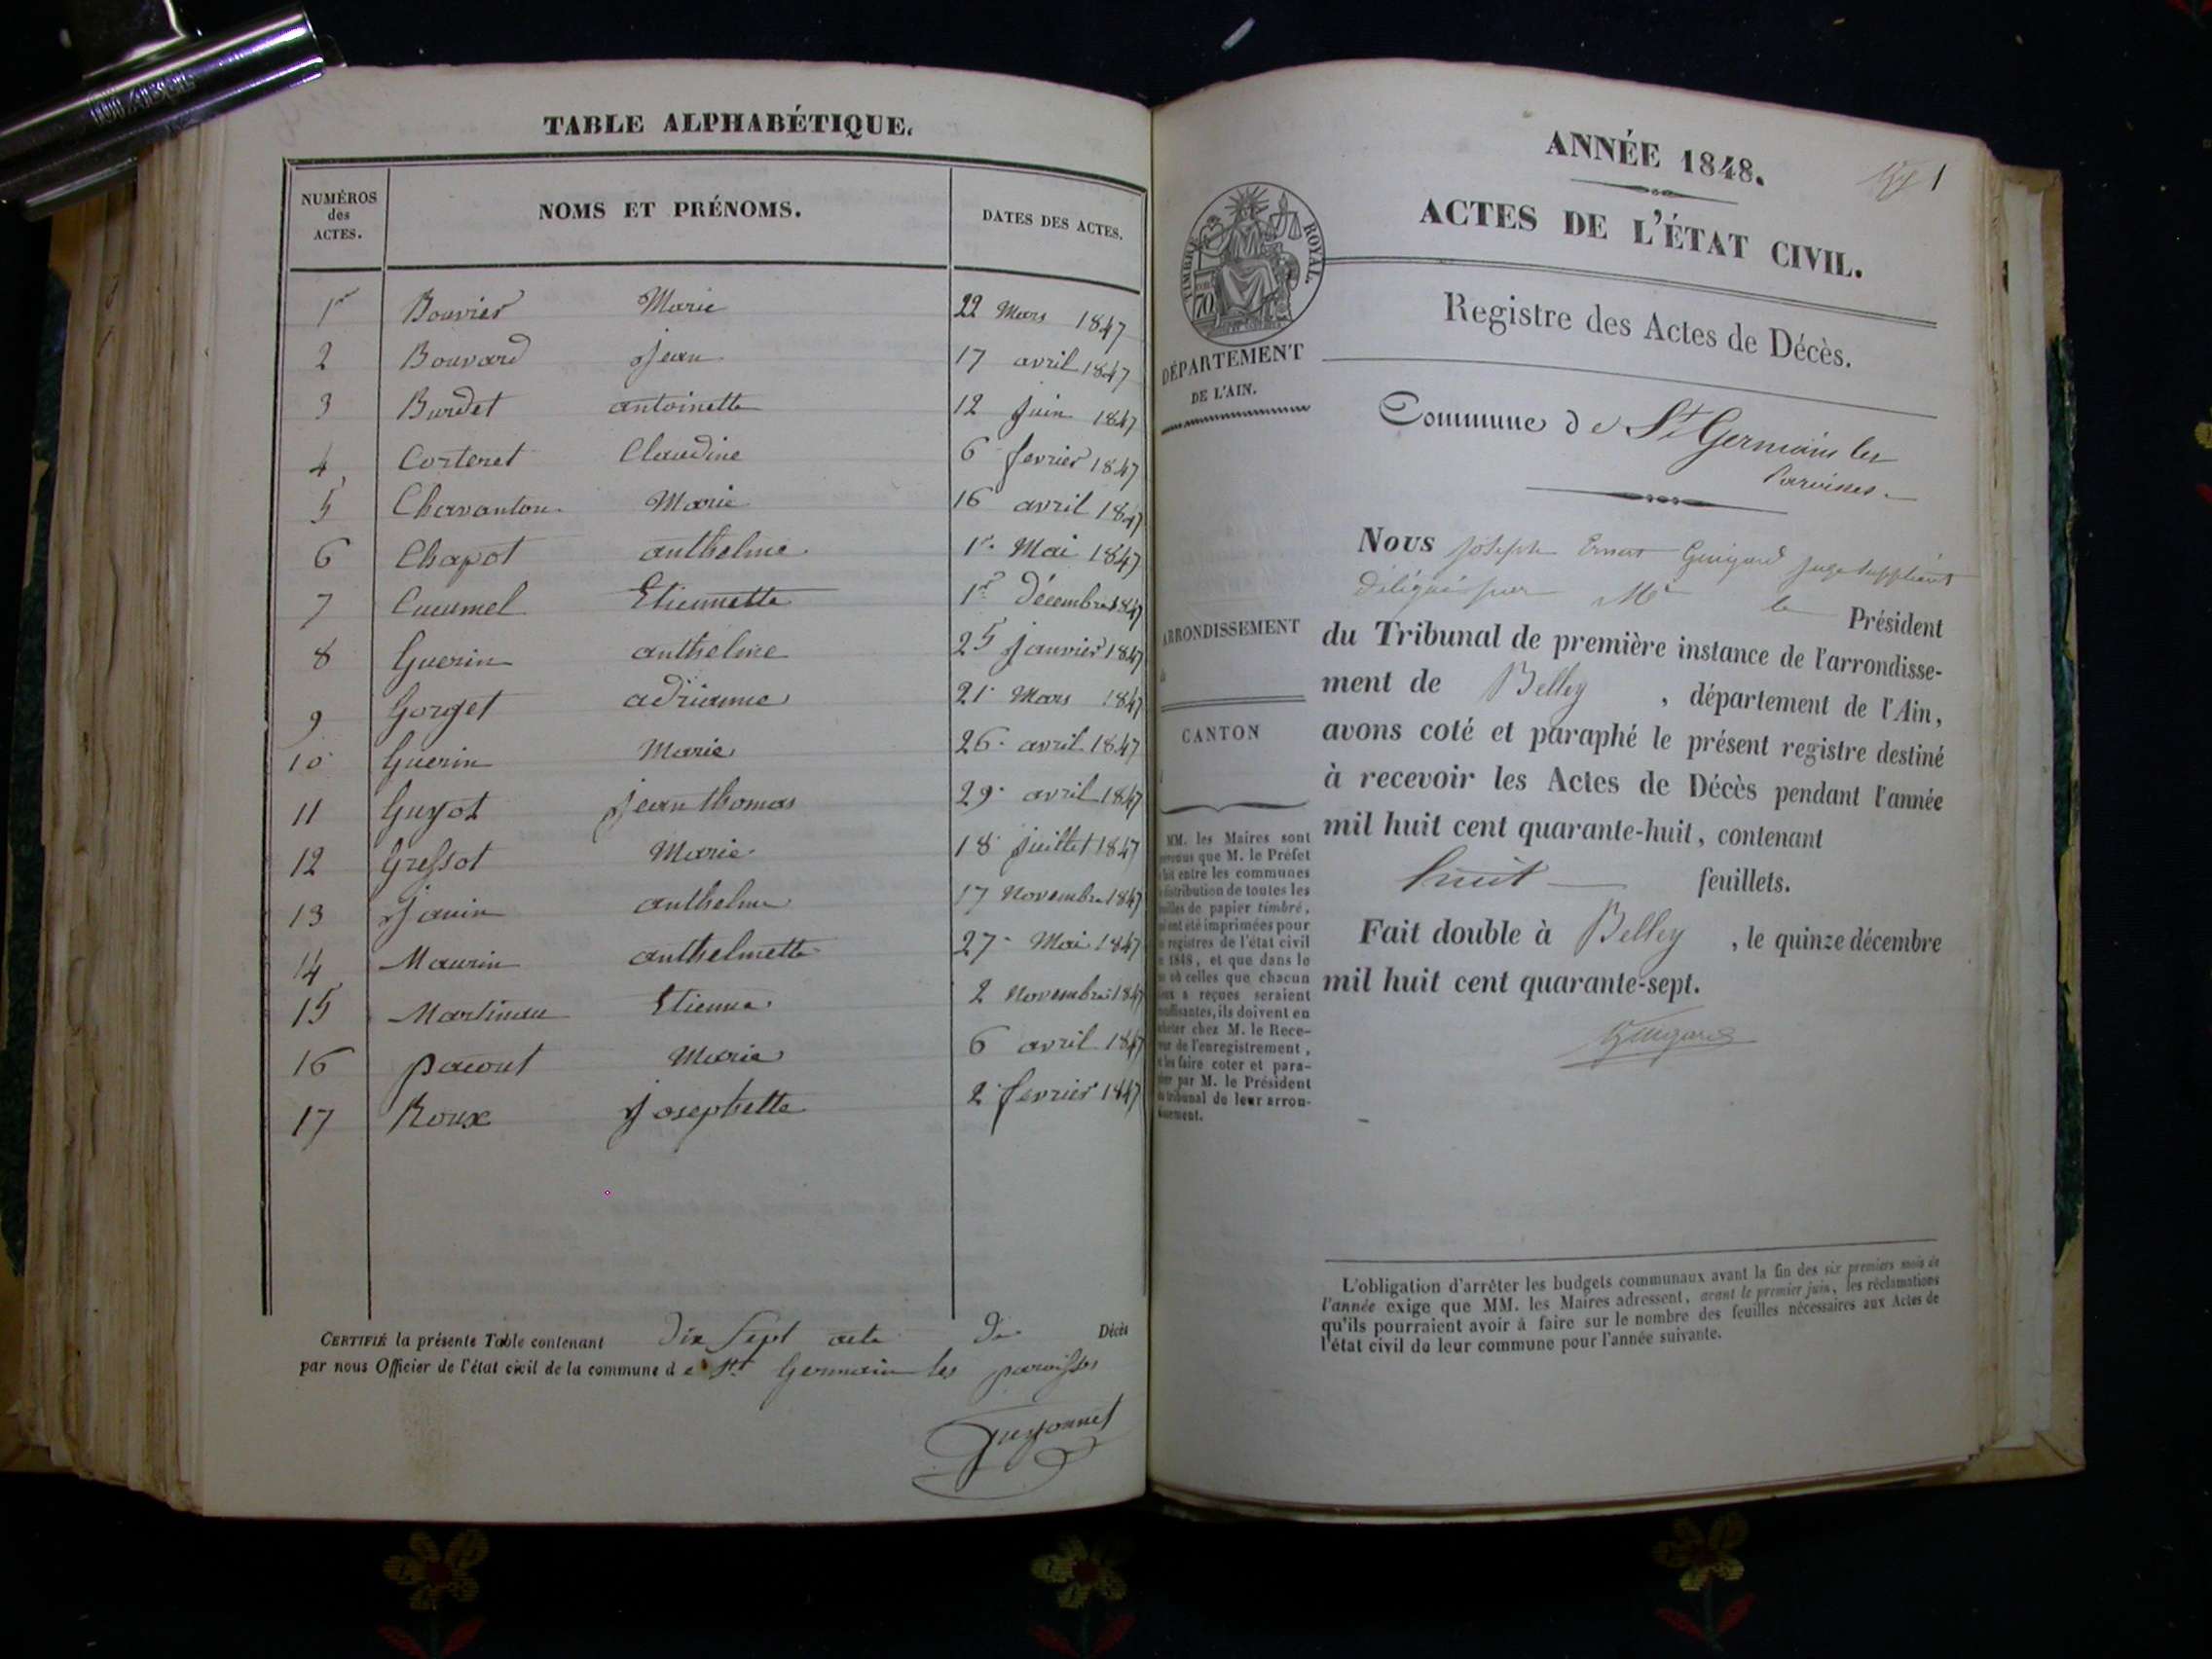 TABLE ALPHABÉTIQUE.
NUMÉROS des ACTES. NOMS ET PRÉNOMS. DATES DES ACTES.
1r Bouvier Marie 22 Mars 1847
2 Bouvard Jean 17 avril 1847
3 Burdet antoinette 12 juin 1847
4 Corteret Claudine 6 fevrier 1847
5 Charvanton Marie 16 avril 1847
6 Chapot anthelme 1r Mai 1847
7 Cucumel Etiennette 1r décembre 1847
8 Guerin anthelme 25 janvier 1847
9 Gorget adrianne 21 Mars 1847
10 Guerin Marie 26 avril 1847
11 Guyot jean thomas 29 avril 1847
12 Gressot Marie 18 juillet 1847
13 Janin anthelme 17 Novembre 1847
14 Maurin anthelmette 27 Mai 1847
15 Martinau Etienne 2 Novembre 1847
16 pacout Marie 6 avril 1847
17 Roux josephette 2 fevrier 1847
CERTIFIÉ la présente Table contenant dix sept acte de Décès
par nous Officier de l'état civil de la commune de St Germain les paroisses
Guyonnet
ANNÉE 1848.
1
ACTES DE L'ÉTAT CIVIL.
TIMBRE ROYAL
70
Registre des Actes de Décès.
DÉPARTEMENT
DE L'AIN.
Commune de St Germain les
Paroisses
Nous Joseph Ernest Guigard juge suppléant
délégué par Mr le Président
ARRONDISSEMENT
du Tribunal de première instance de l'arrondisse-
ment de Belley , département de l'Ain,
CANTON
avons coté et paraphé le présent registre destiné
à recevoir les Actes de Décès pendant l'année
mil huit cent quarante-huit, contenant
huit feuillets.
Fait double à Belley , le quinze décembre
mil huit cent quarante-sept.
Guigard
MM. les Maires sont
que M. le Préfet
entre les communes
distribution de toutes les
de papier timbré,
ont été imprimées pour
registres de l'état civil
1848, et que dans le
où celles que chacun
a reçues seraient
ils doivent en
chez M. le Rece-
de l'enregistrement,
les faire coter et para-
par M. le Président
tribunal de leur arron-
L'obligation d'arrêter les budgets communaux avant la fin des six premiers mois de
l'année exige que MM. les Maires adressent, avant le premier juin, les réclamations
qu'ils pourraient avoir à faire sur le nombre des feuilles nécessaires aux Actes de
l'état civil de leur commune pour l'année suivante.